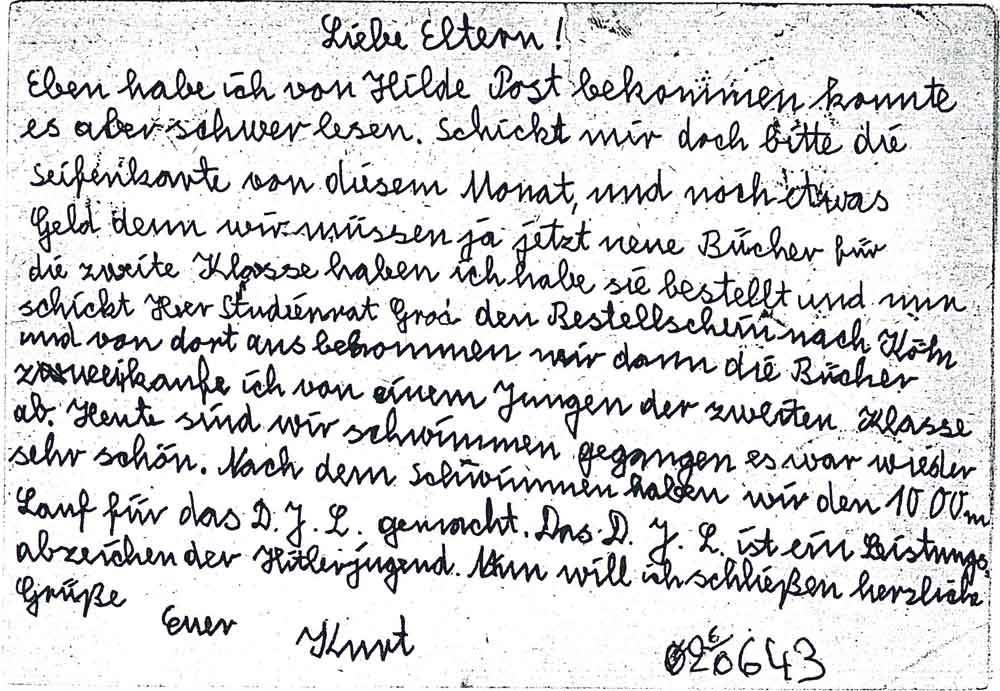 Liebe Eltern!
Eben habe ich von Hilde Post bekommen konnte
es aber schwer lesen. Schickt mir doch bitte die
Seifenkarte von diesem Monat, und noch etwas
Geld denn wir müssen ja jetzt neue Bücher für
die zweite Klasse haben ich habe sie bestellt und nun
schickt Herr Studienrat den Bestellschein nach Köln
und von dort aus bekommen wir dann die Bücher
zwei kaufe ich von einem Jungen der zweiten Klasse
ab. Heute sind wir schwimmen gegangen es war wieder
sehr schön. Nach dem schwimmen haben wir den 1000m
Lauf für das D. J. L. gemacht. Das D. J. L. ist ein Leistungs-
abzeichen der Hitlerjugend. Nun will ich schließen herzliche
Grüße
Euer Kurt